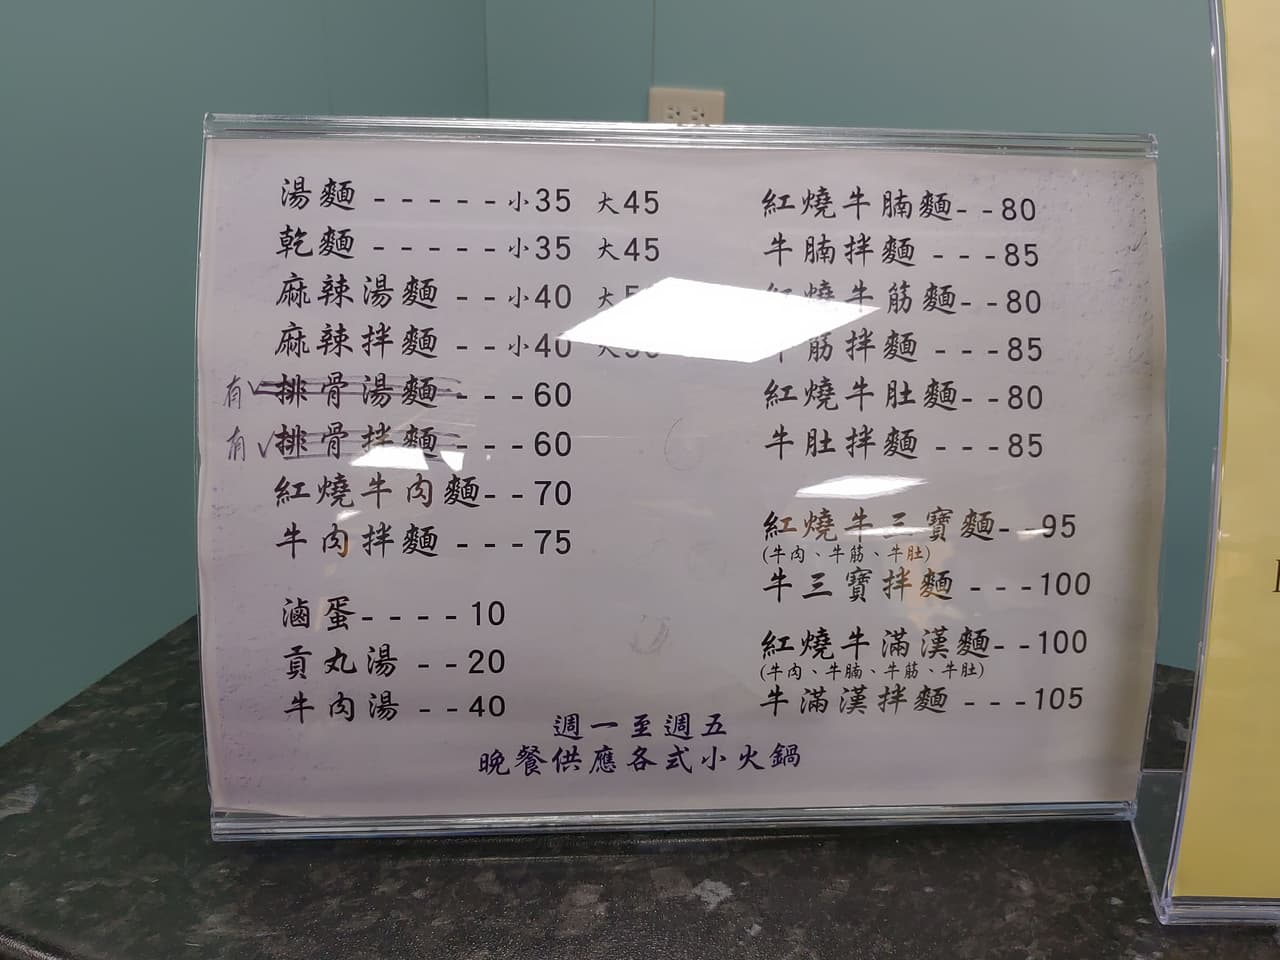 湯麵 - - - - - 小35 大45
乾麵 - - - - - 小35 大45
麻辣湯麵 - - 小40 大5
麻辣拌麵 - - 小40 大50
有✓排骨湯麵 - - - 60
有✓排骨拌麵 - - - 60
紅燒牛肉麵- - 70
牛肉拌麵 - - - 75
滷蛋- - - - 10
貢丸湯 - - 20
牛肉湯 - - 40
紅燒牛腩麵- - 80
牛腩拌麵 - - - 85
紅燒牛筋麵- - 80
牛筋拌麵 - - - 85
紅燒牛肚麵- - 80
牛肚拌麵 - - - 85
紅燒牛三寶麵- - 95
(牛肉、牛筋、牛肚)
牛三寶拌麵 - - - 100
紅燒牛滿漢麵- - 100
(牛肉、牛腩、牛筋、牛肚)
牛滿漢拌麵 - - - 105
週一至週五
晚餐供應各式小火鍋